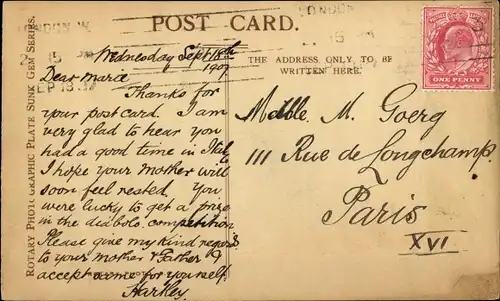 POST CARD.
LONDON. W.
2. 15
SP 18. 07
LONDON
15
ROTARY PHOTOGRAPHIC PLATE SUNK GEM SERIES.
THE ADDRESS ONLY TO BE
WRITTEN HERE.
ONE PENNY
Wednesday Sept 18th
1907
Dear Marie
Thanks for
your post card. I am
very glad to hear you
had a good time in Italy
I hope your mother will
soon feel rested. You
were lucky to get a prize
in the diabolo competition
Please give my kind regards
to your mother & Father &
accept same for yourself
Hartley
Mdlle. M. Goerg
111 Rue de Longchamp
Paris
XVI